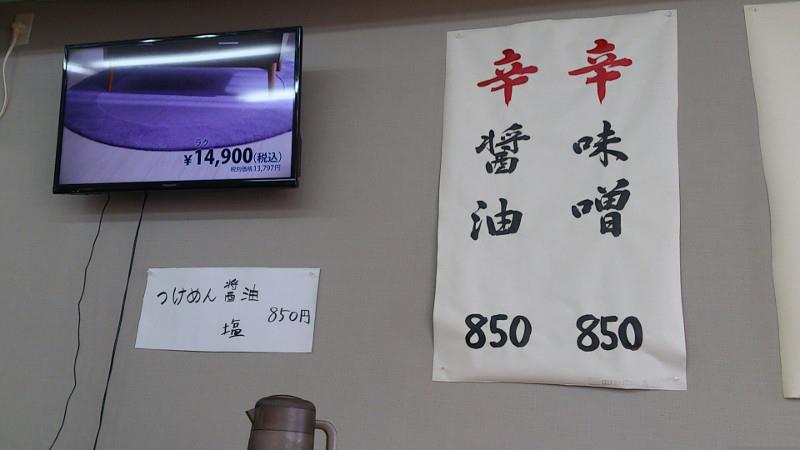 ラク
¥14,900(税込)
税別価格 13,797円
つけめん 醤油
850円
塩
辛味噌
850
辛醤油
850